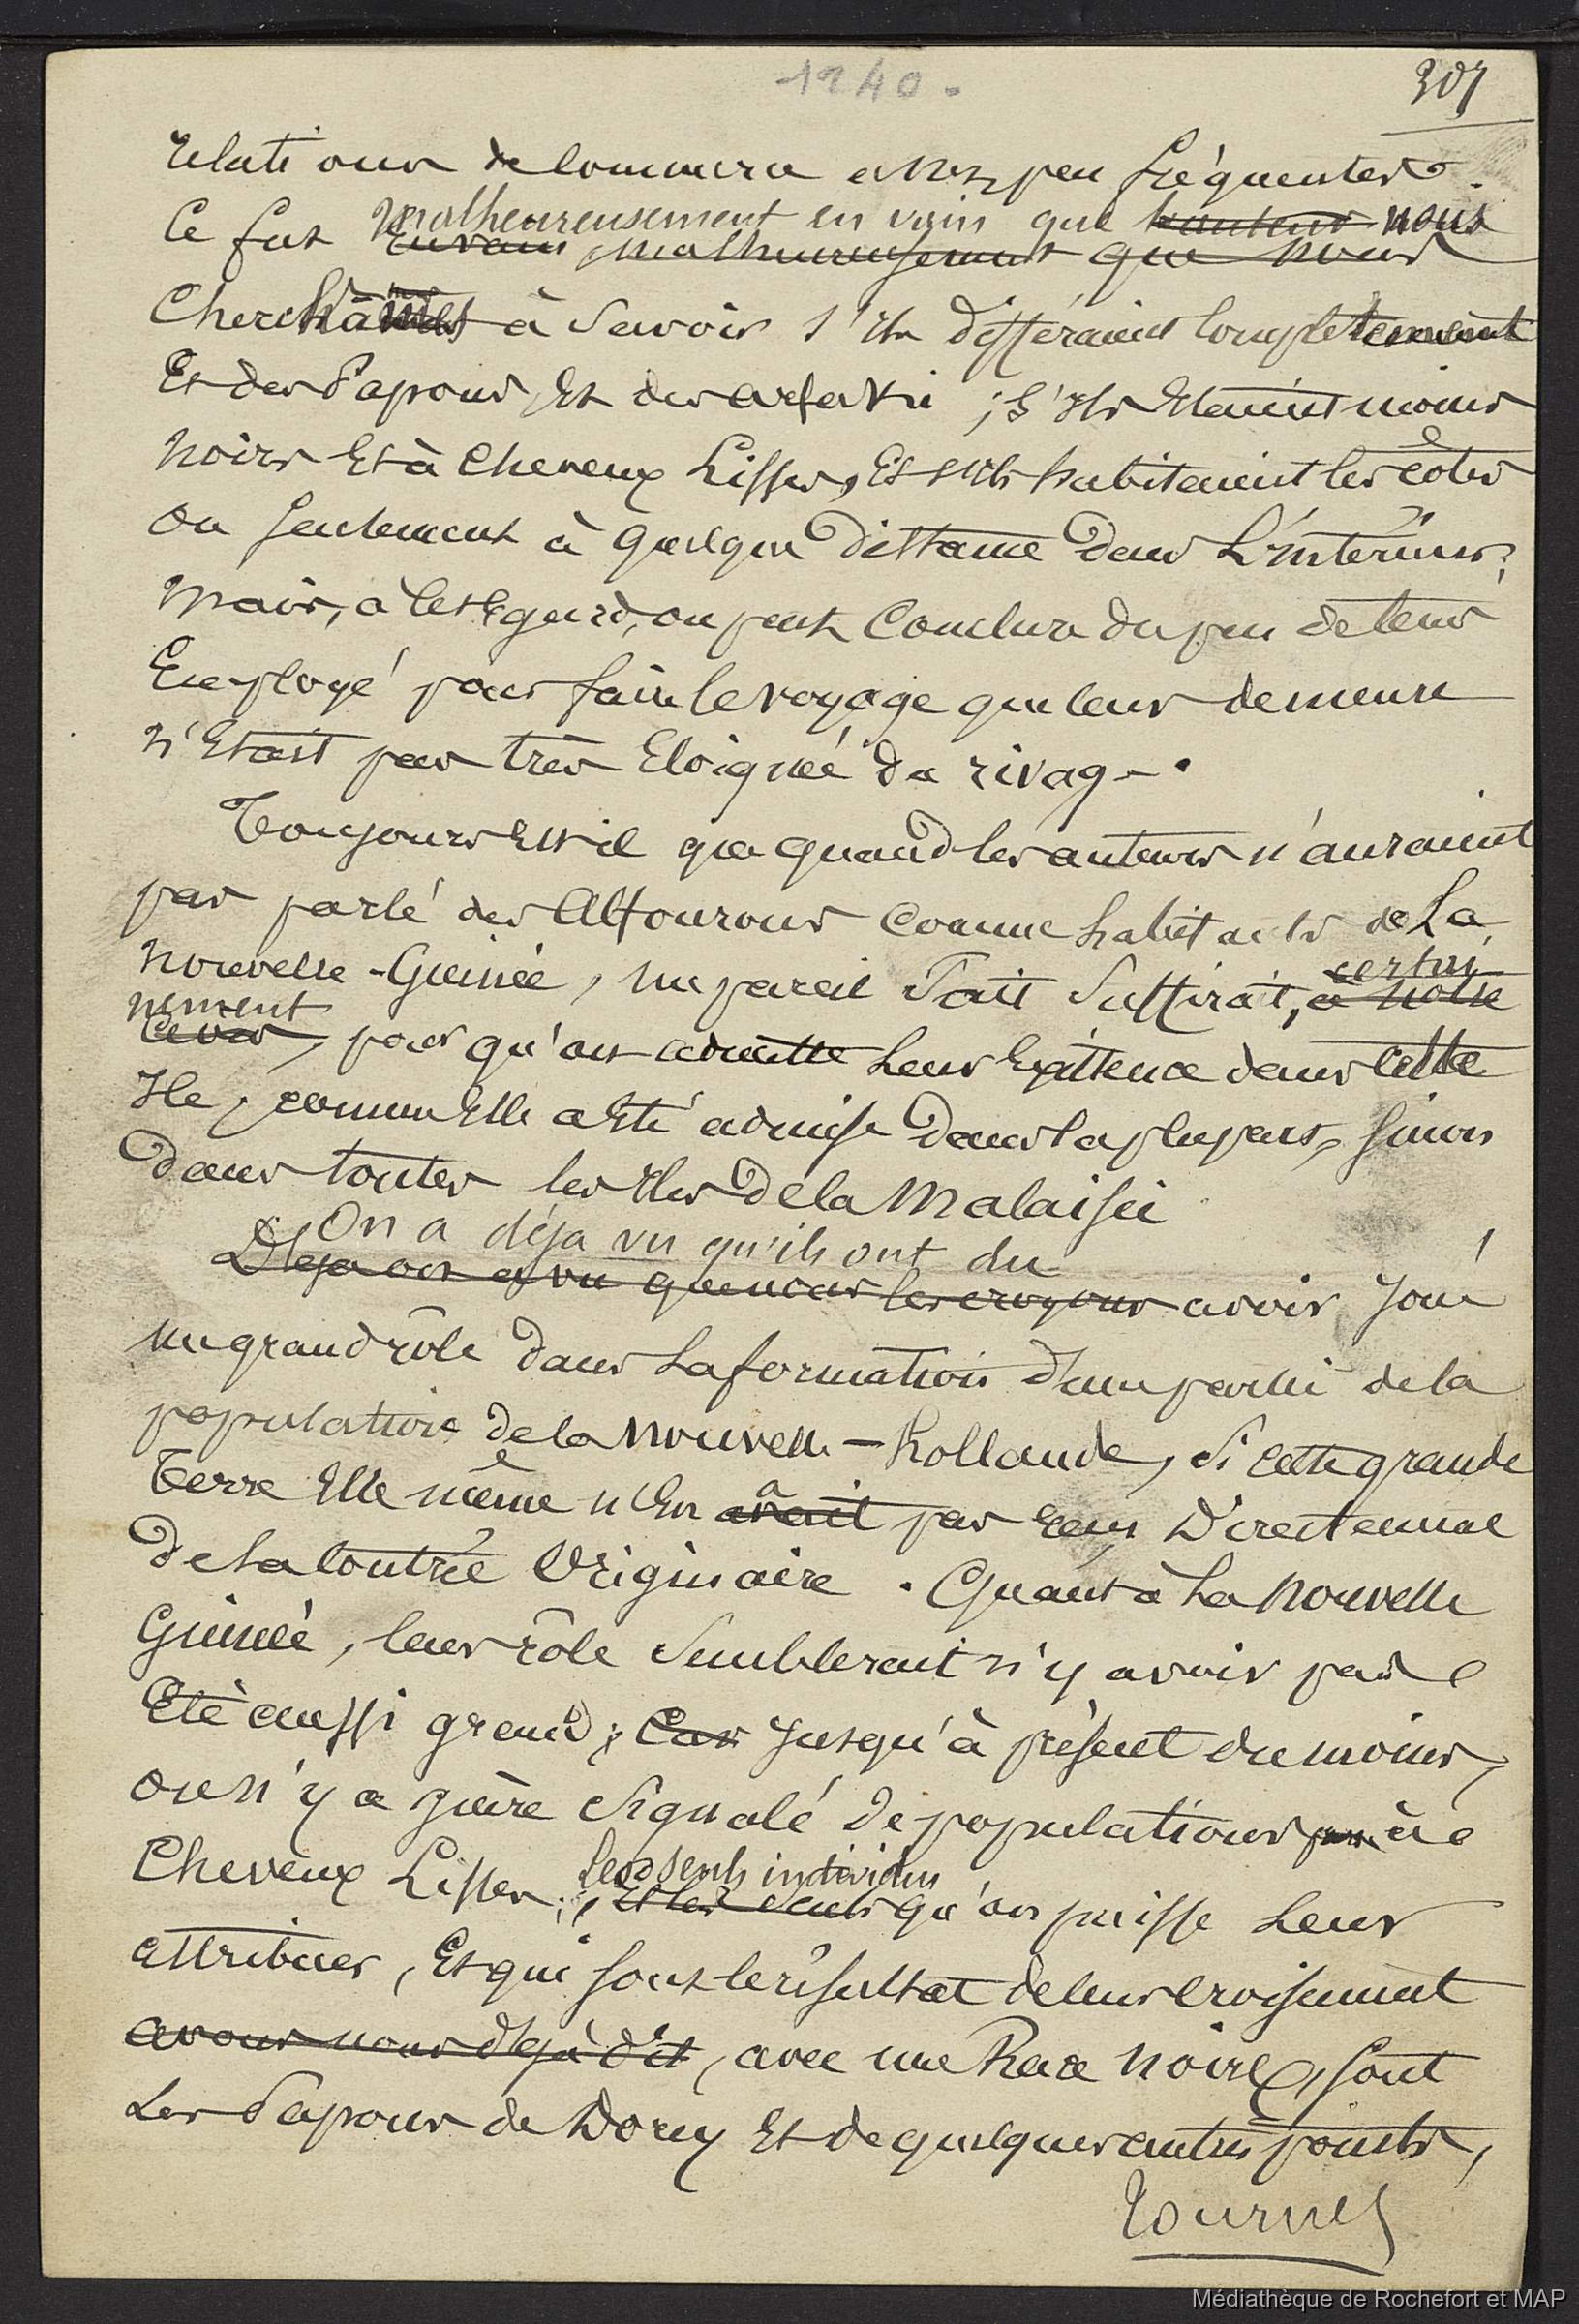 1240.
307
relations de commerce assez peu fréquentes.
malheureusement en vain que nous
Ce fut en vain malheureusement que nous
Cherchâmes à savoir s'ils différaient complètement
Et des Papous Et des arfakis ; s'ils Etaient moins
noirs Et à Cheveux Lisses, Et s'ils habitaient les côtes
ou seulement à quelque distance dans L'intérieur ;
mais, à cet Egard, on peut Conclure du peu de tems
Employé pour faire le voyage que leur demeure
n'Etait pas très Eloignée du rivage.
Toujours Est-il que quand les auteurs n'auraient
pas parlé des Alfourous comme habitants de La
certai
Nouvelle-Guinée, un pareil Fait suffirait, à notre
nement
avis, pour qu'on admette Leur Existence dans cette
Ile, comme Elle a Eté admise dans la plupart, sinon
dans toutes les Iles de la Malaisie
On a déja vu qu'ils ont du
Déja on a vu que nous les croyons avoir Joué
un grand rôle dans La formation d'une partie de la
population de la nouvelle-hollande, si cette grande
a
Terre Elle même n'En avait pas reçu Directement
de La contrée Originaire. Quant à La nouvelle
Guinée, leur rôle semblerait n'y avoir pas
Eté aussi grand ; Car Jusqu'à présent du moins,
on n'y a guère signalé de populations à
Cheveux Lisses ;
les seuls individus
Et les seuls qu'on puisse Leur
attribuer, Et qui sont le résultat de leur croisement
avons nous déjà dit, avec une Race noire, sont
Les Papous de Dorey Et de quelques autres points,
Tournez
Médiathèque de Rochefort et MAP